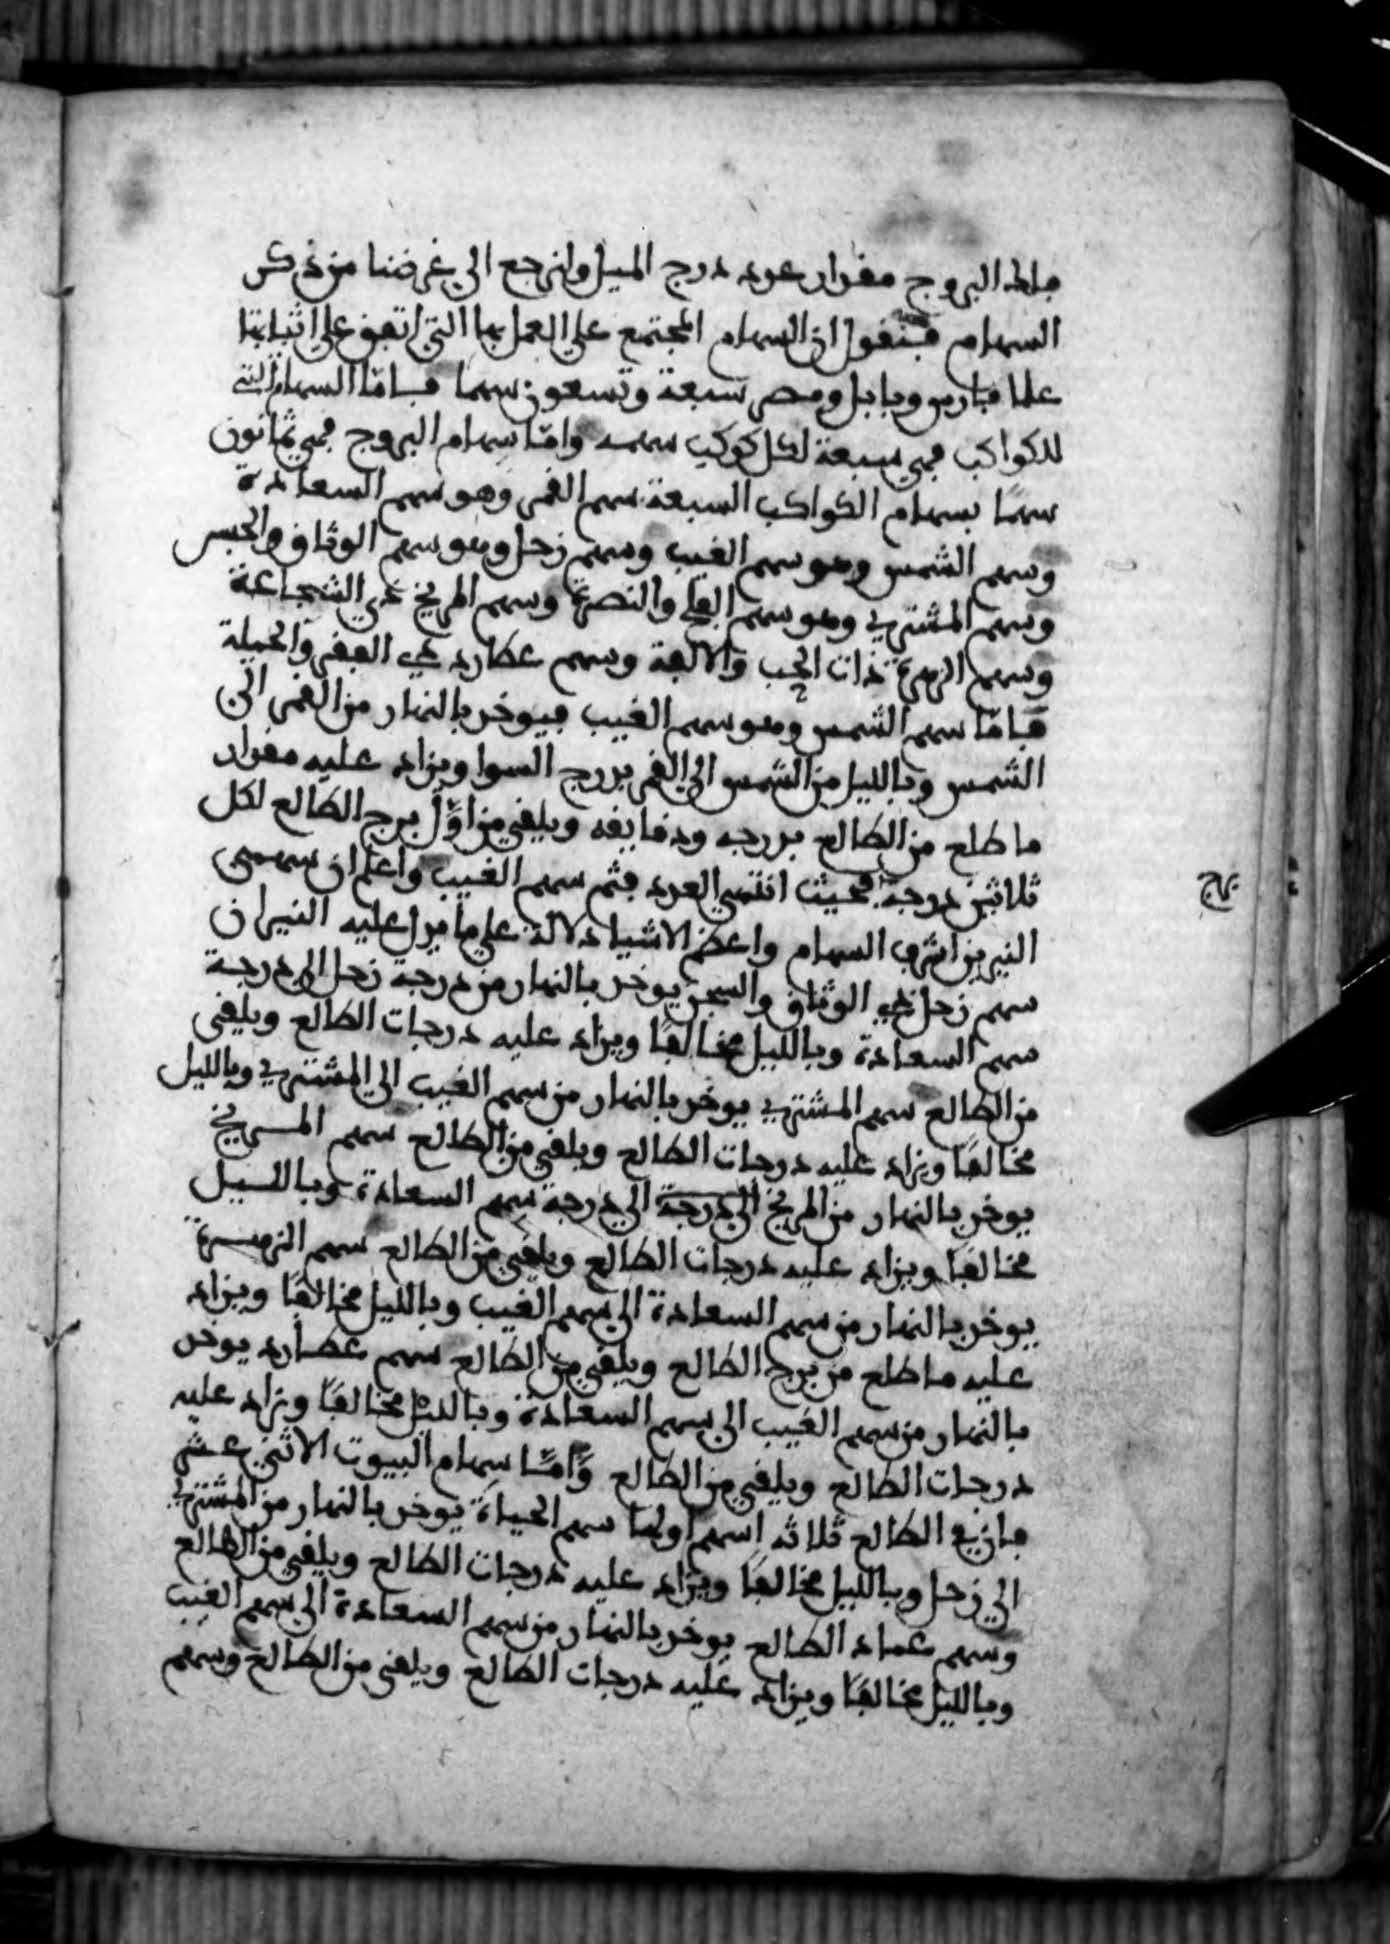 فلك البروج مقدار عدد درج الميل ولنرجع الي غرضنا من ذكر
السهام فنقول ان السهام المجتمع علي العمل بها التي اتفق علي اثباتها
علما فارس وبابل ومصر سبعة وتسعون سهما فامّا السهام التي
للكواكب فهي سبعة لكل كوكب سهم وامّا سهام البروج فهي ثمانون
سهمًا بسهام الكواكب السبعة سهم القمر وهو سهم السعادة
وسهم الشمس وهو سهم الغيب وسهم زحل وهو سهم الوثاق والحبس
وسهم المشتري وهو سهم الفلج والنصرة وسهم المريخ ذي الشجاعة
وسهم الزهرة ذات الحب والالفة وسهم عطارد ذي الفقر والحيلة
فامّا سهم الشمس وهو سهم الغيب فيوخذ بالنهار من القمر الى
الشمس وبالليل من الشمس الي القمر بدرج السوا ويزاد عليه مقدار
ما طلع من الطالع بدرجه ودقايقه ويلقي من اوّل برج الطالع لكل
ثلاثين درجة فحيث انتهي العدد فثم سهم الغيب واعلم ان سهمى
النيرين اشرف السهام واعظم الاشيا دلالة علي ما يدل عليه النيران
سهم زحل ذي الوثاق والسجن يوخذ بالنهار من درجة زحل الي درجة
سهم السعادة وبالليل مخالفًا ويزاد عليه درجات الطالع ويلقى
من الطالع سهم المشتري يوخذ بالنهار من سهم الغيب الي المشتري وبالليل
مخالفًا ويزاد عليه درجات الطالع ويلقي من الطالع سهم المريخ
يوخذ بالنهار من المريخ الي درجة الي درجة سهم السعادة وبالليل
مخالفًا ويزاد عليه درجات الطالع ويلقي من الطالع سهم الزهرة
يوخذ بالنهار من سهم السعادة الي سهم الغيب وبالليل مخالفًا ويزاد
عليه ما طلع من برج الطالع ويلقي من الطالع سهم عطارد يوخذ
بالنهار من سهم الغيب الي سهم السعادة وبالليل مخالفًا ويزاد عليه
درجات الطالع ويلقي من الطالع وامّا سهام البيوت الاثني عشر
فان في الطالع ثلاثه اسهم اولها سهم الحياة يوخذ بالنهار من المشتري
الي زحل وبالليل مخالفًا ويزاد عليه درجات الطالع ويلقي من الطالع
وسهم عماد الطالع يوخذ بالنهار من سهم السعادة الي سهم الغيب
وبالليل مخالفًا ويزاد عليه درجات الطالع ويلقى من الطالع وسهم